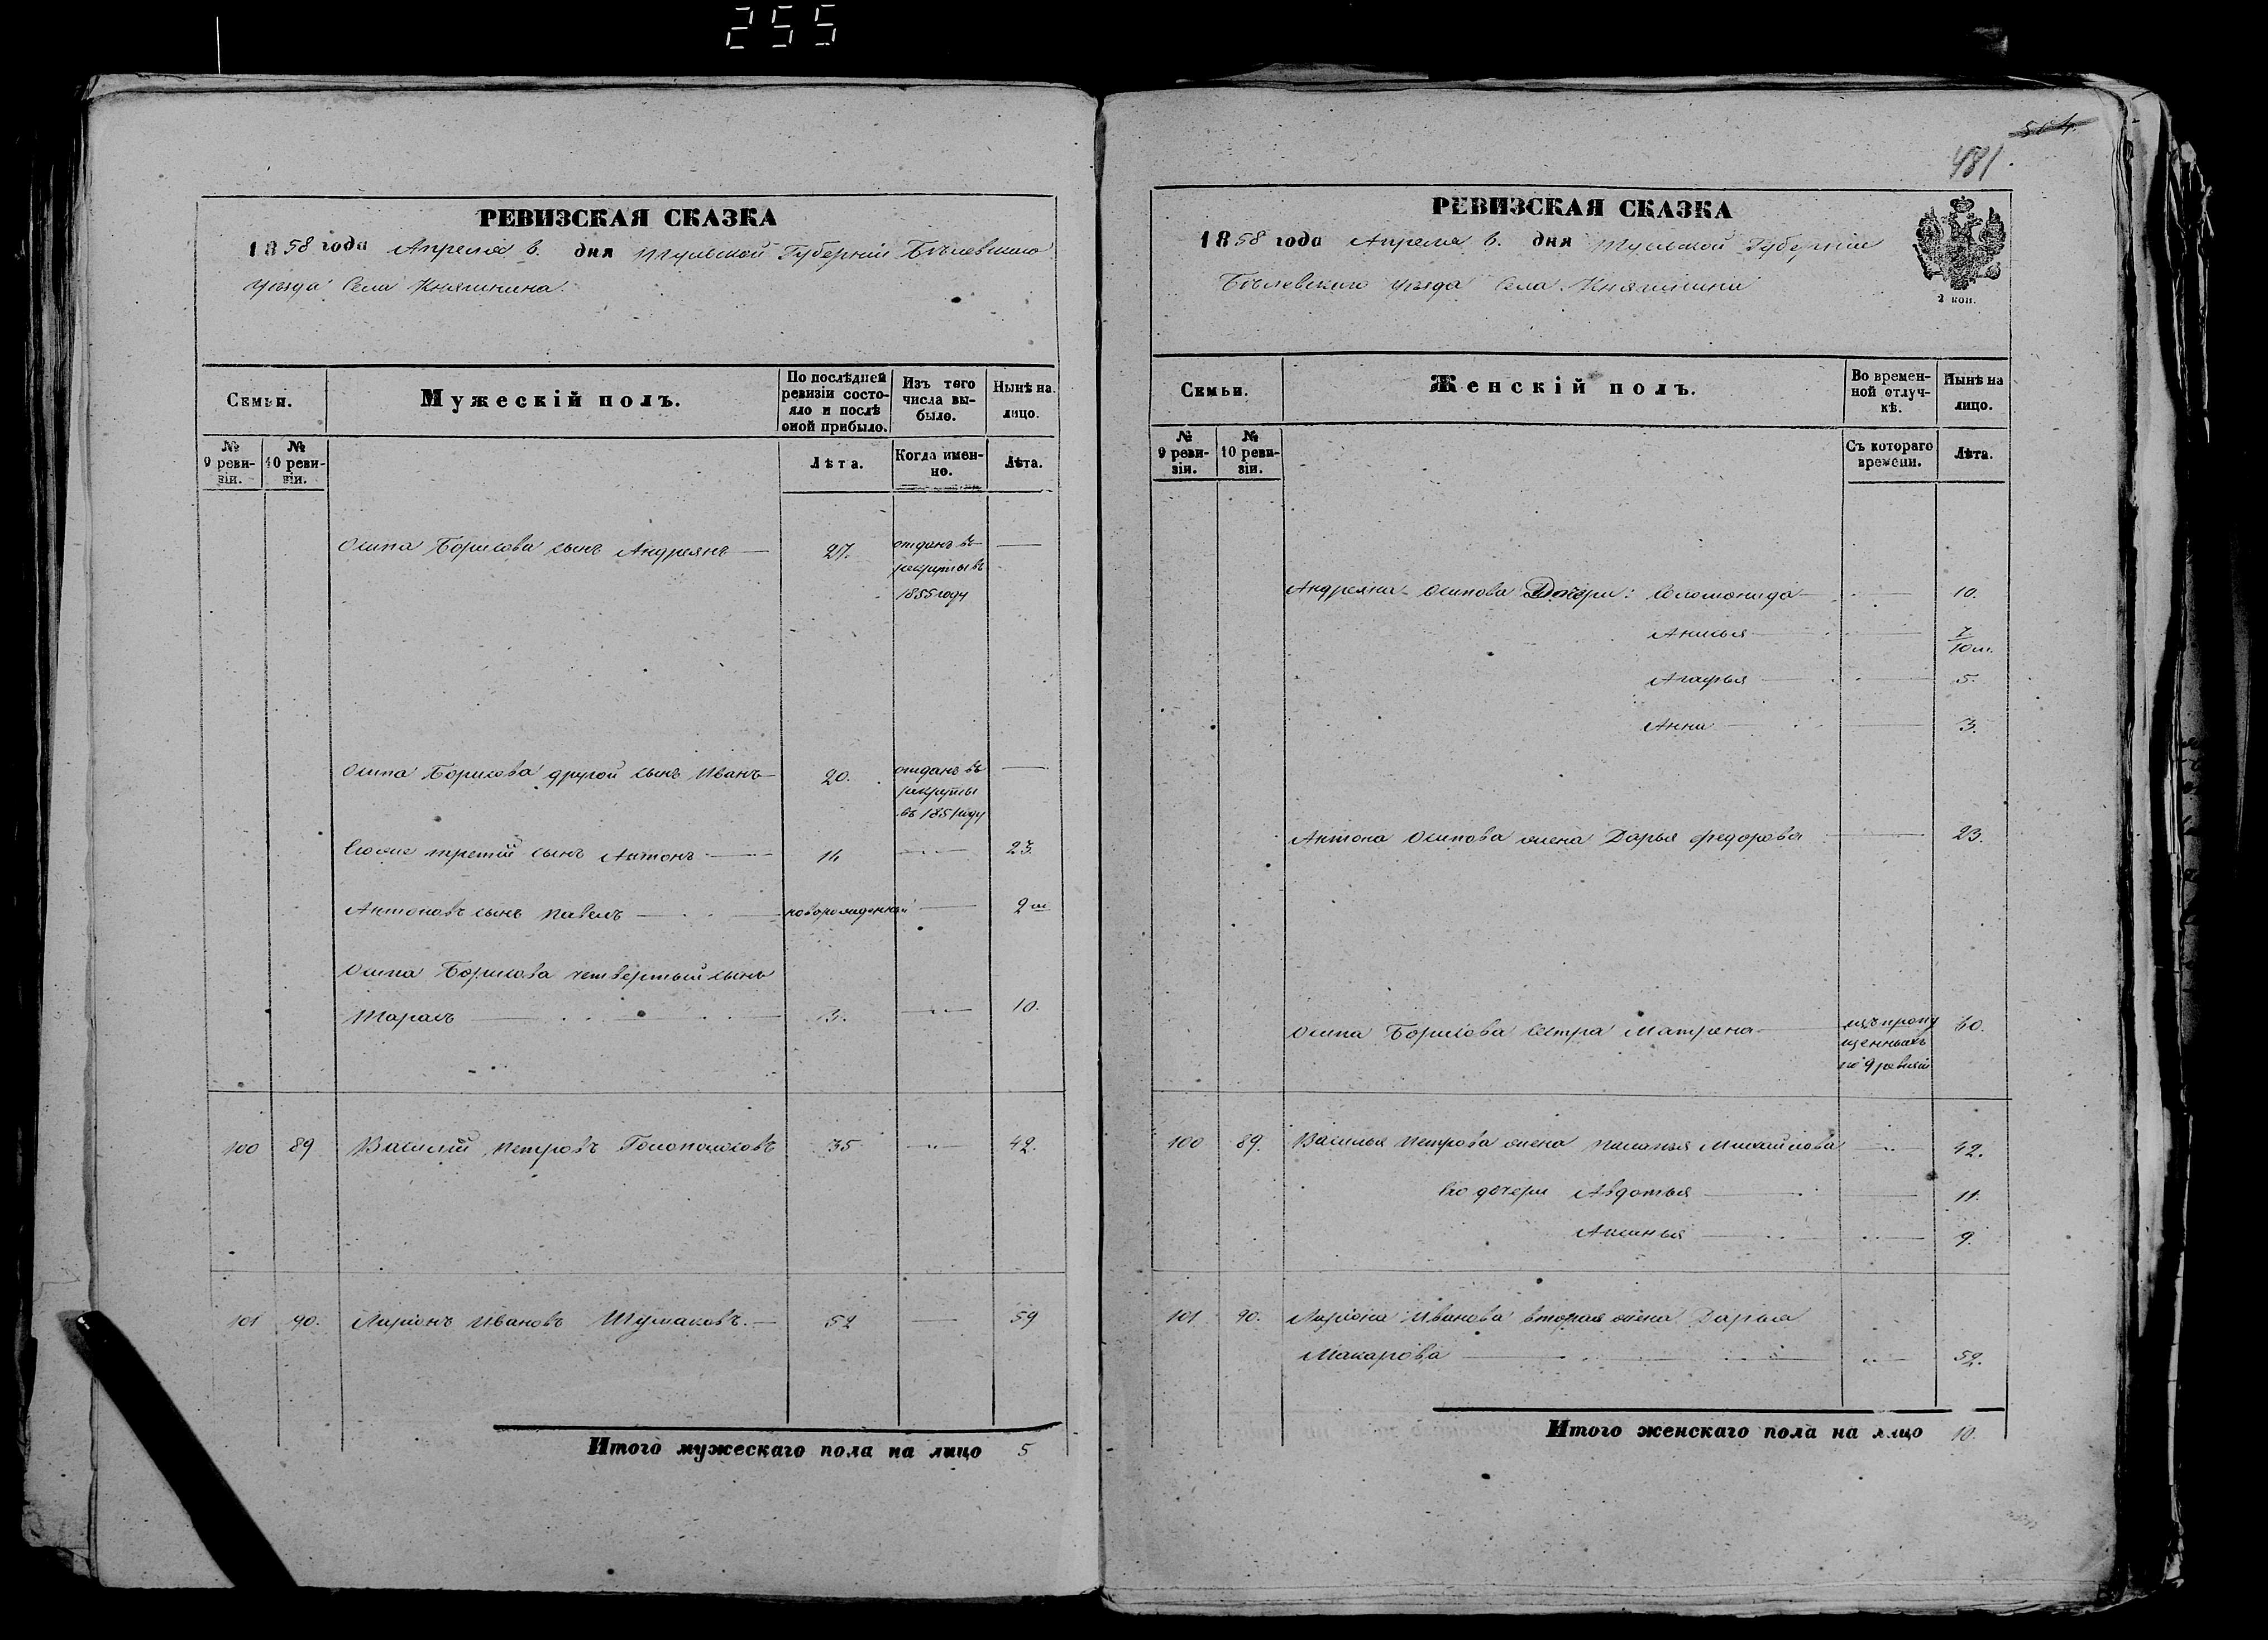 255
504.
481
РЕВИЗСКАЯ СКАЗКА
1858 года Апреля 6. дня Тульской Губерніи Бѣлевскаго
уѣзда Села Княгинина.
Семьи.
Мужескій полъ.
По послѣдней ревизіи состояло и послѣ оной прибыло.
Изъ того числа выбыло.
Нынѣ на лицо.
№ 9 ревизіи.
№ 10 ревизіи.
Лѣта.
Когда именно.
Лѣта.
Осипа Борисова сынъ Андреянъ — 27. отданъ въ —
рекруты въ
1855 году
Осипа Борисова другой сынъ Иванъ — 20. отданъ въ —
рекруты
въ 1851 году
третій сынъ Антонъ — 23.
Антоновъ сынъ Павелъ — новорожденный — 2 м
Осипа Борисова четвертый сынъ
Тарасъ — 3. — 10.
100 89 Василій Петровъ 35 — 42.
101 90. Ларіонъ Ивановъ Шумаковъ. — 52 — 59
Итого мужескаго пола на лицо 5
РЕВИЗСКАЯ СКАЗКА
1858 года Апреля 6. дня Тульской Губерніи
Бѣлевского уѣзда Села Княгинина
2 коп.
Семьи.
Женскій полъ.
Во временной отлучкѣ.
Нынѣ на лицо.
№ 9 ревизіи.
№ 10 ревизіи.
Съ котораго времени.
Лѣта.
Андреяна Осипова Дочери: Соломонида — 10.
Анисья — 7/10 м.
Агафья — 5.
Анна — 3.
Антона Осипова жена Дарья Федорова — 23.
Осипа Борисова сестра Матрена — изъ пропу 60.
щенныхъ
по 9 ревизіи
100 89. Василья Петрова жена Михайлова — 42.
Его дочери Авдотья — 11.
Аксинья — 9.
101 90. Ларіона Иванова вторая жена Дарья
Макарова — 52.
Итого женскаго пола на лицо 10.